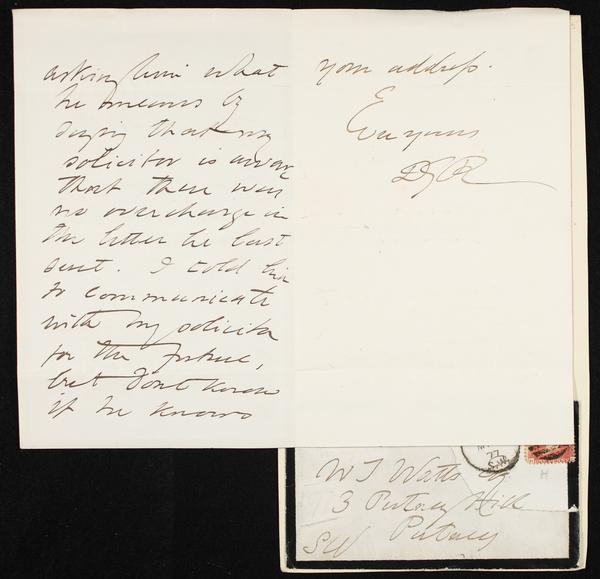 asking him what
he means by
saying that my
solicitor is aware
that there was
no overcharge in
the letter he last
sent. I told him
to communicate
with my solicitor
for the future,
but don't know
if he knows
your address.
Ever yours
DGR
77
S.W
W T Watts Esq
3 Putney Hill
Putney
SW
H